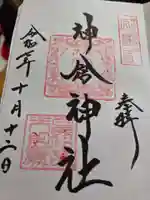 奉拝
神倉神社
令和二年十月十二日